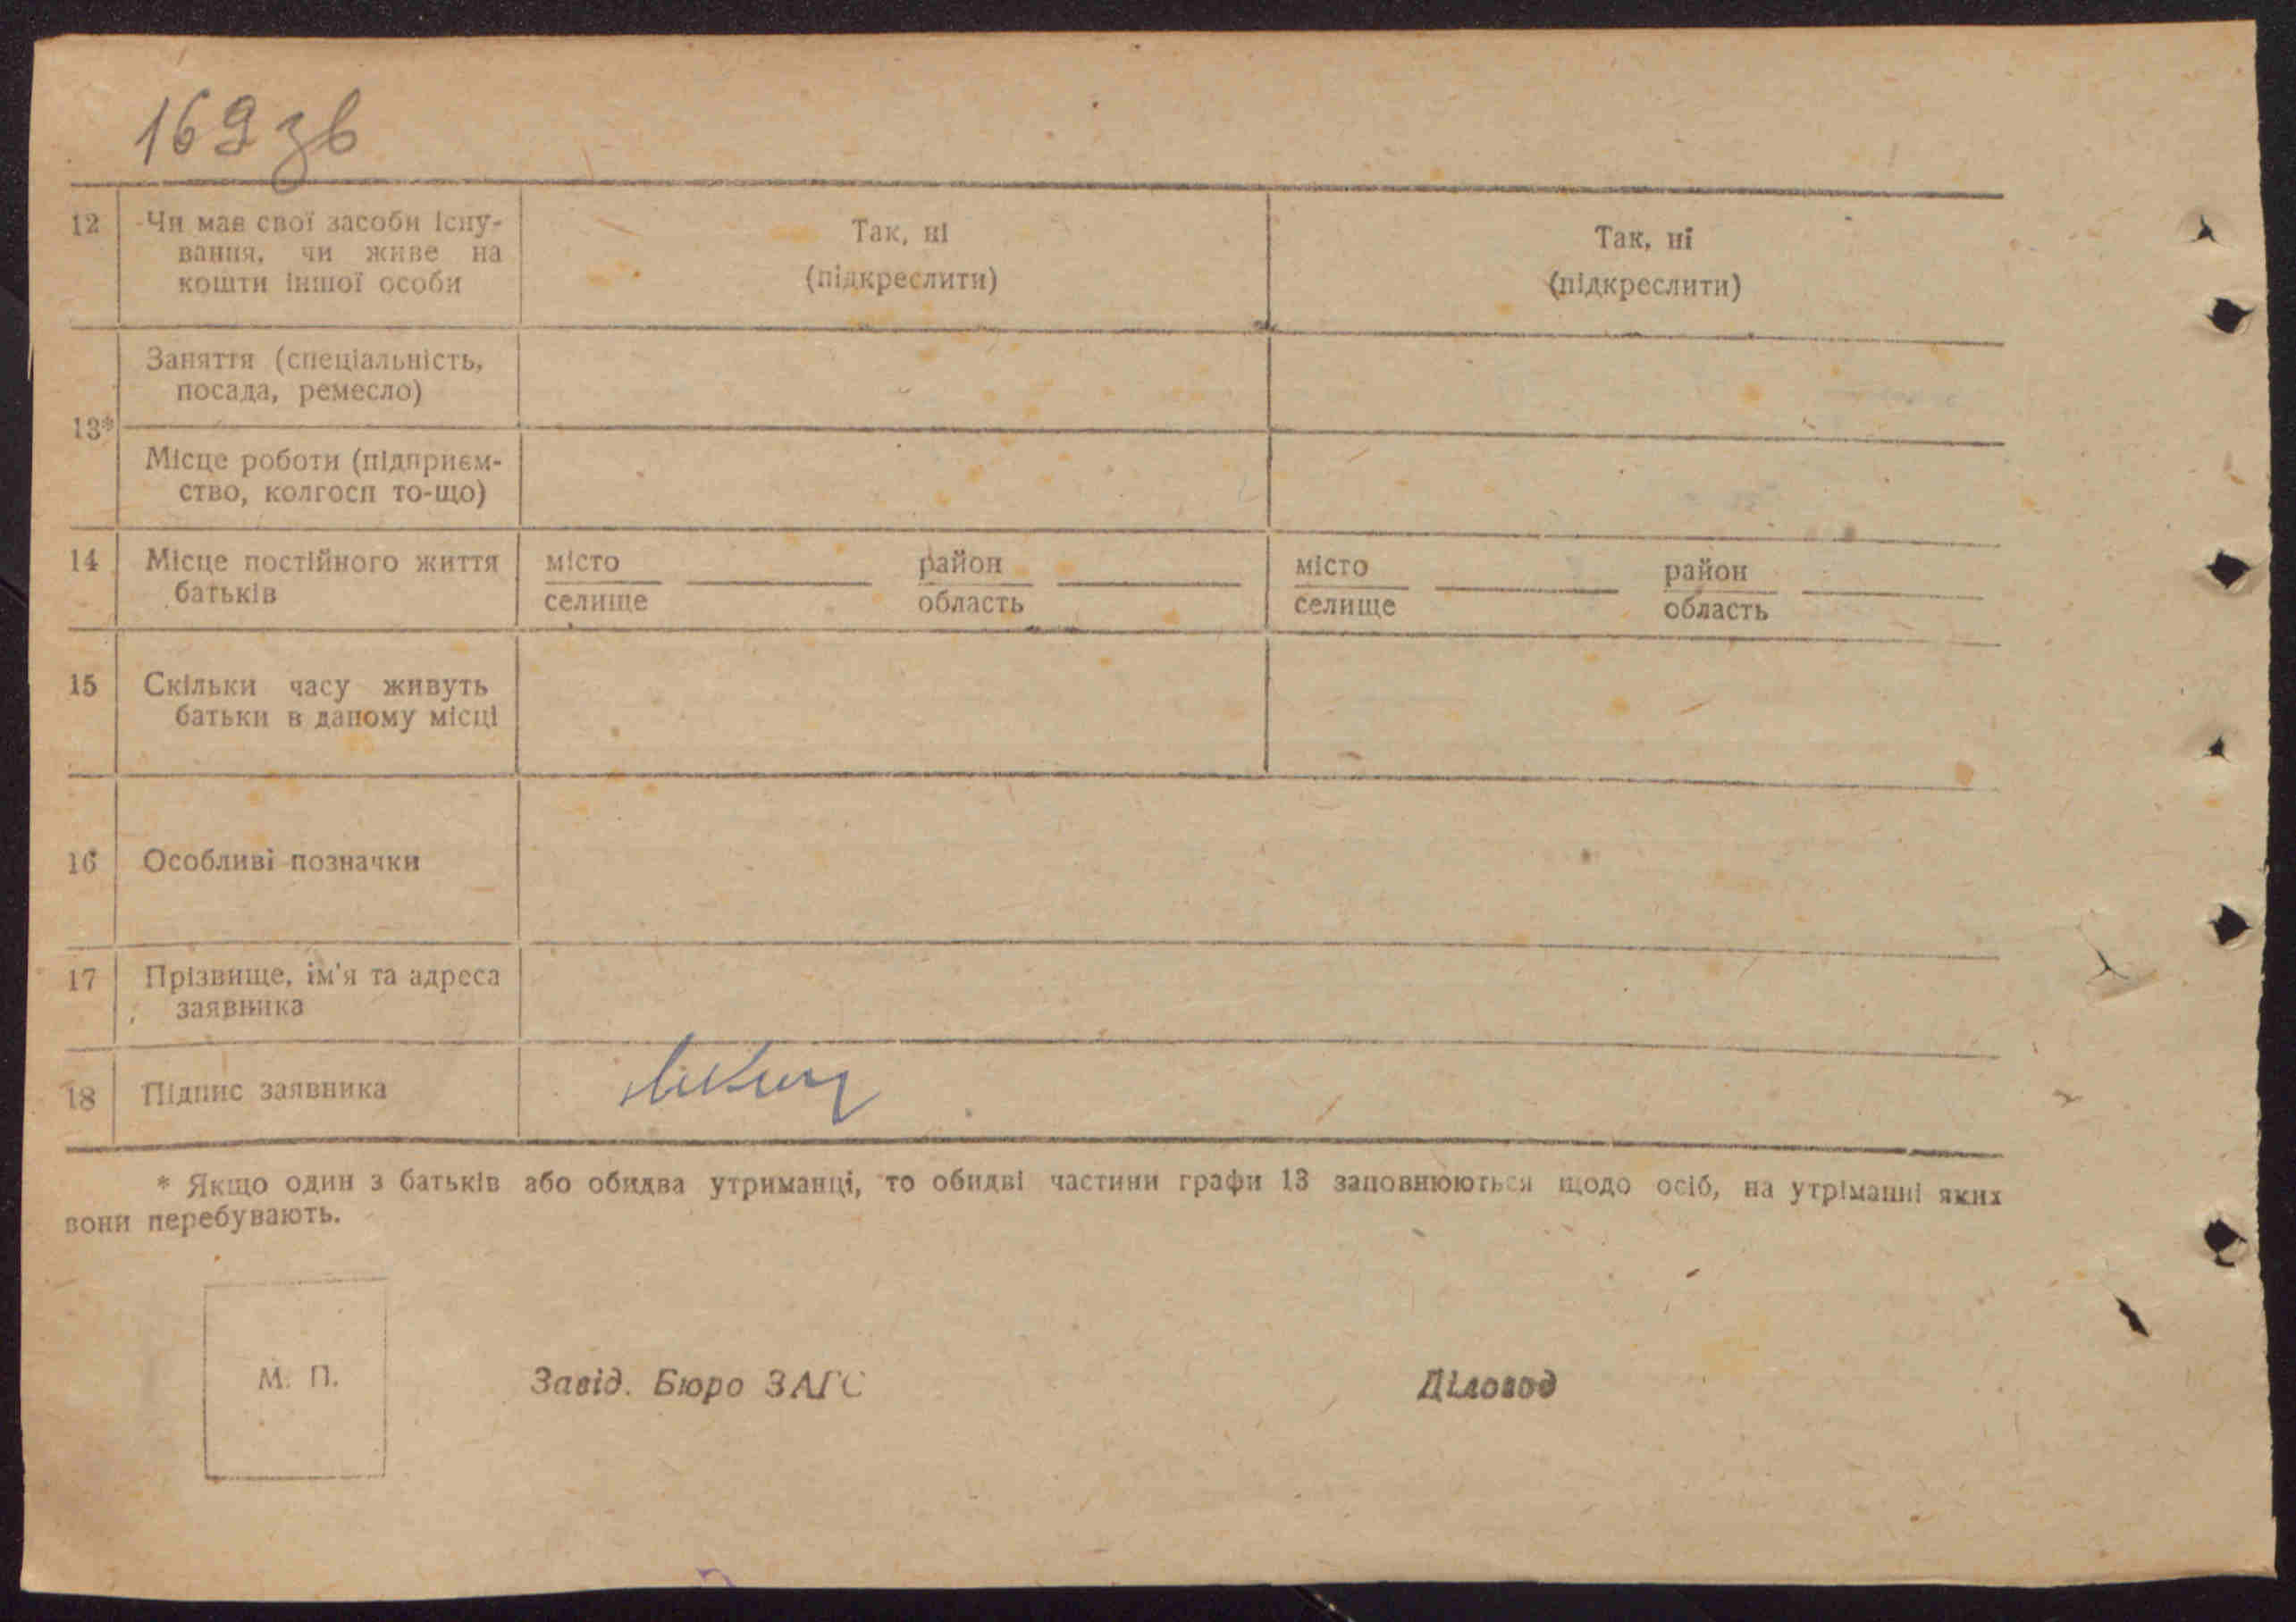 169 зв
12 Чи має свої засоби існу- Так, ні Так, ні
вання, чи живе на (підкреслити) (підкреслити)
кошти іншої особи
Заняття (спеціальність,
посада, ремесло)
13*
Місце роботи (підприєм-
ство, колгосп то-що)
14 Місце постійного життя місто район місто район
батьків селище область селище область
15 Скільки часу живуть
батьки в даному місці
16 Особливі позначки
17 Прізвище, ім'я та адреса
заявника
18 Підпис заявника
* Якщо один з батьків або обидва утриманці, то обидві частини графи 13 заповнюються щодо осіб, на утріманні яких
вони перебувають.
М. П. Завід. Бюро ЗАГС Діловод